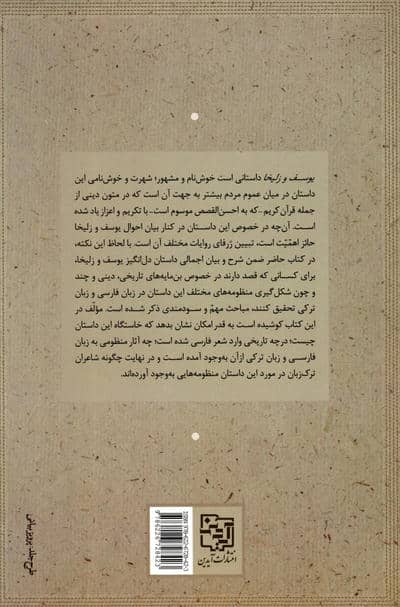 یوسف و زلیخا داستانی است خوش‌نام و مشهور؛ شهرت و خوش‌نامی این
داستان در میان عموم مردم بیشتر به جهت آن است که در متون دینی از
جمله قرآن کریم -که به احسن‌القصص موسوم است- با تکریم و اعزاز یاد شده
است. آن‌چه در خصوص این داستان در کنار بیان احوال یوسف و زلیخا
حائز اهمّیّت است، تبیین ژرفای روایات مختلف آن است. با لحاظ این نکته،
در کتاب حاضر ضمن شرح و بیان اجمالی داستان دل‌انگیز یوسف و زلیخا،
برای کسانی که قصد دارند در خصوص بن‌مایه‌های تاریخی، دینی و چند
و چون شکل‌گیری منظومه‌های مختلف این داستان در زبان فارسی و زبان
ترکی تحقیق کنند، مباحث مهمّ و سودمندی ذکر شده است. مؤلّف در
این کتاب کوشیده است به قدر امکان نشان بدهد که خاستگاه این داستان
چیست؛ درچه تاریخی وارد شعر فارسی شده است؛ چه آثار منظومی به زبان
فارسی و زبان ترکی ازآن به‌وجود آمده است و در نهایت چگونه شاعران
ترک‌زبان در مورد این داستان منظومه‌هایی به‌وجود آورده‌اند.
انتشارات آیدین
طرح جلد: پرویز بیانی